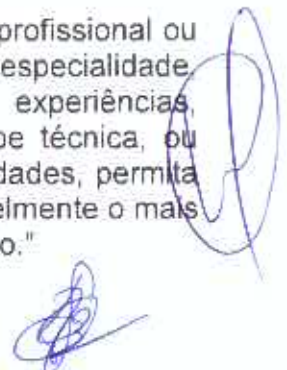 profissional ou
especialidade,
experiências,
pe técnica, ou
dades, permita
elmente o mais
o."